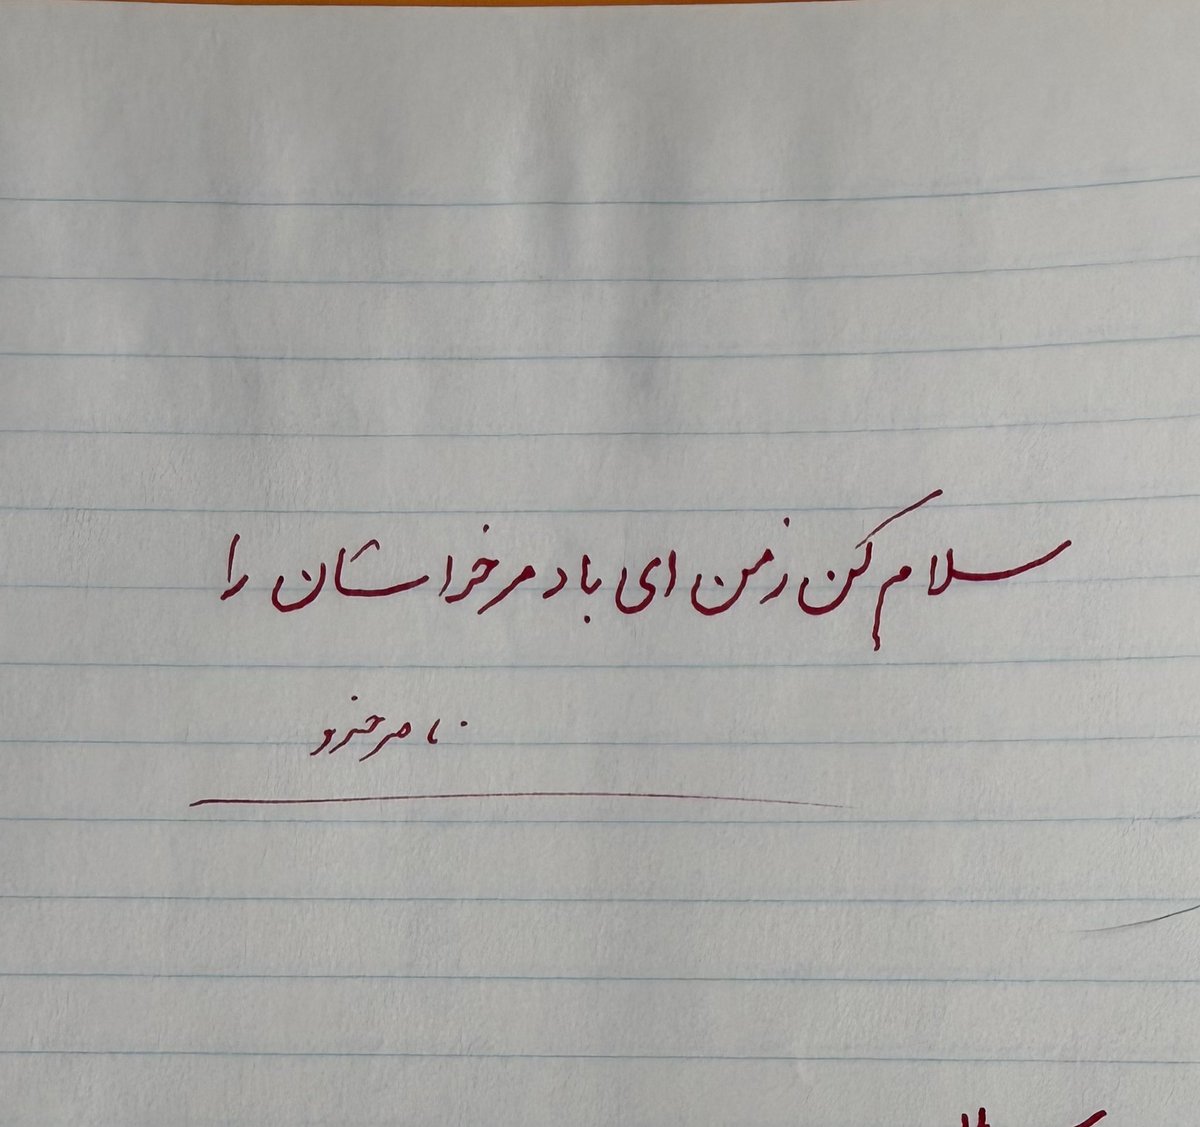 سلام کن ز من ای باد مر خراسان را
ناصر خسرو